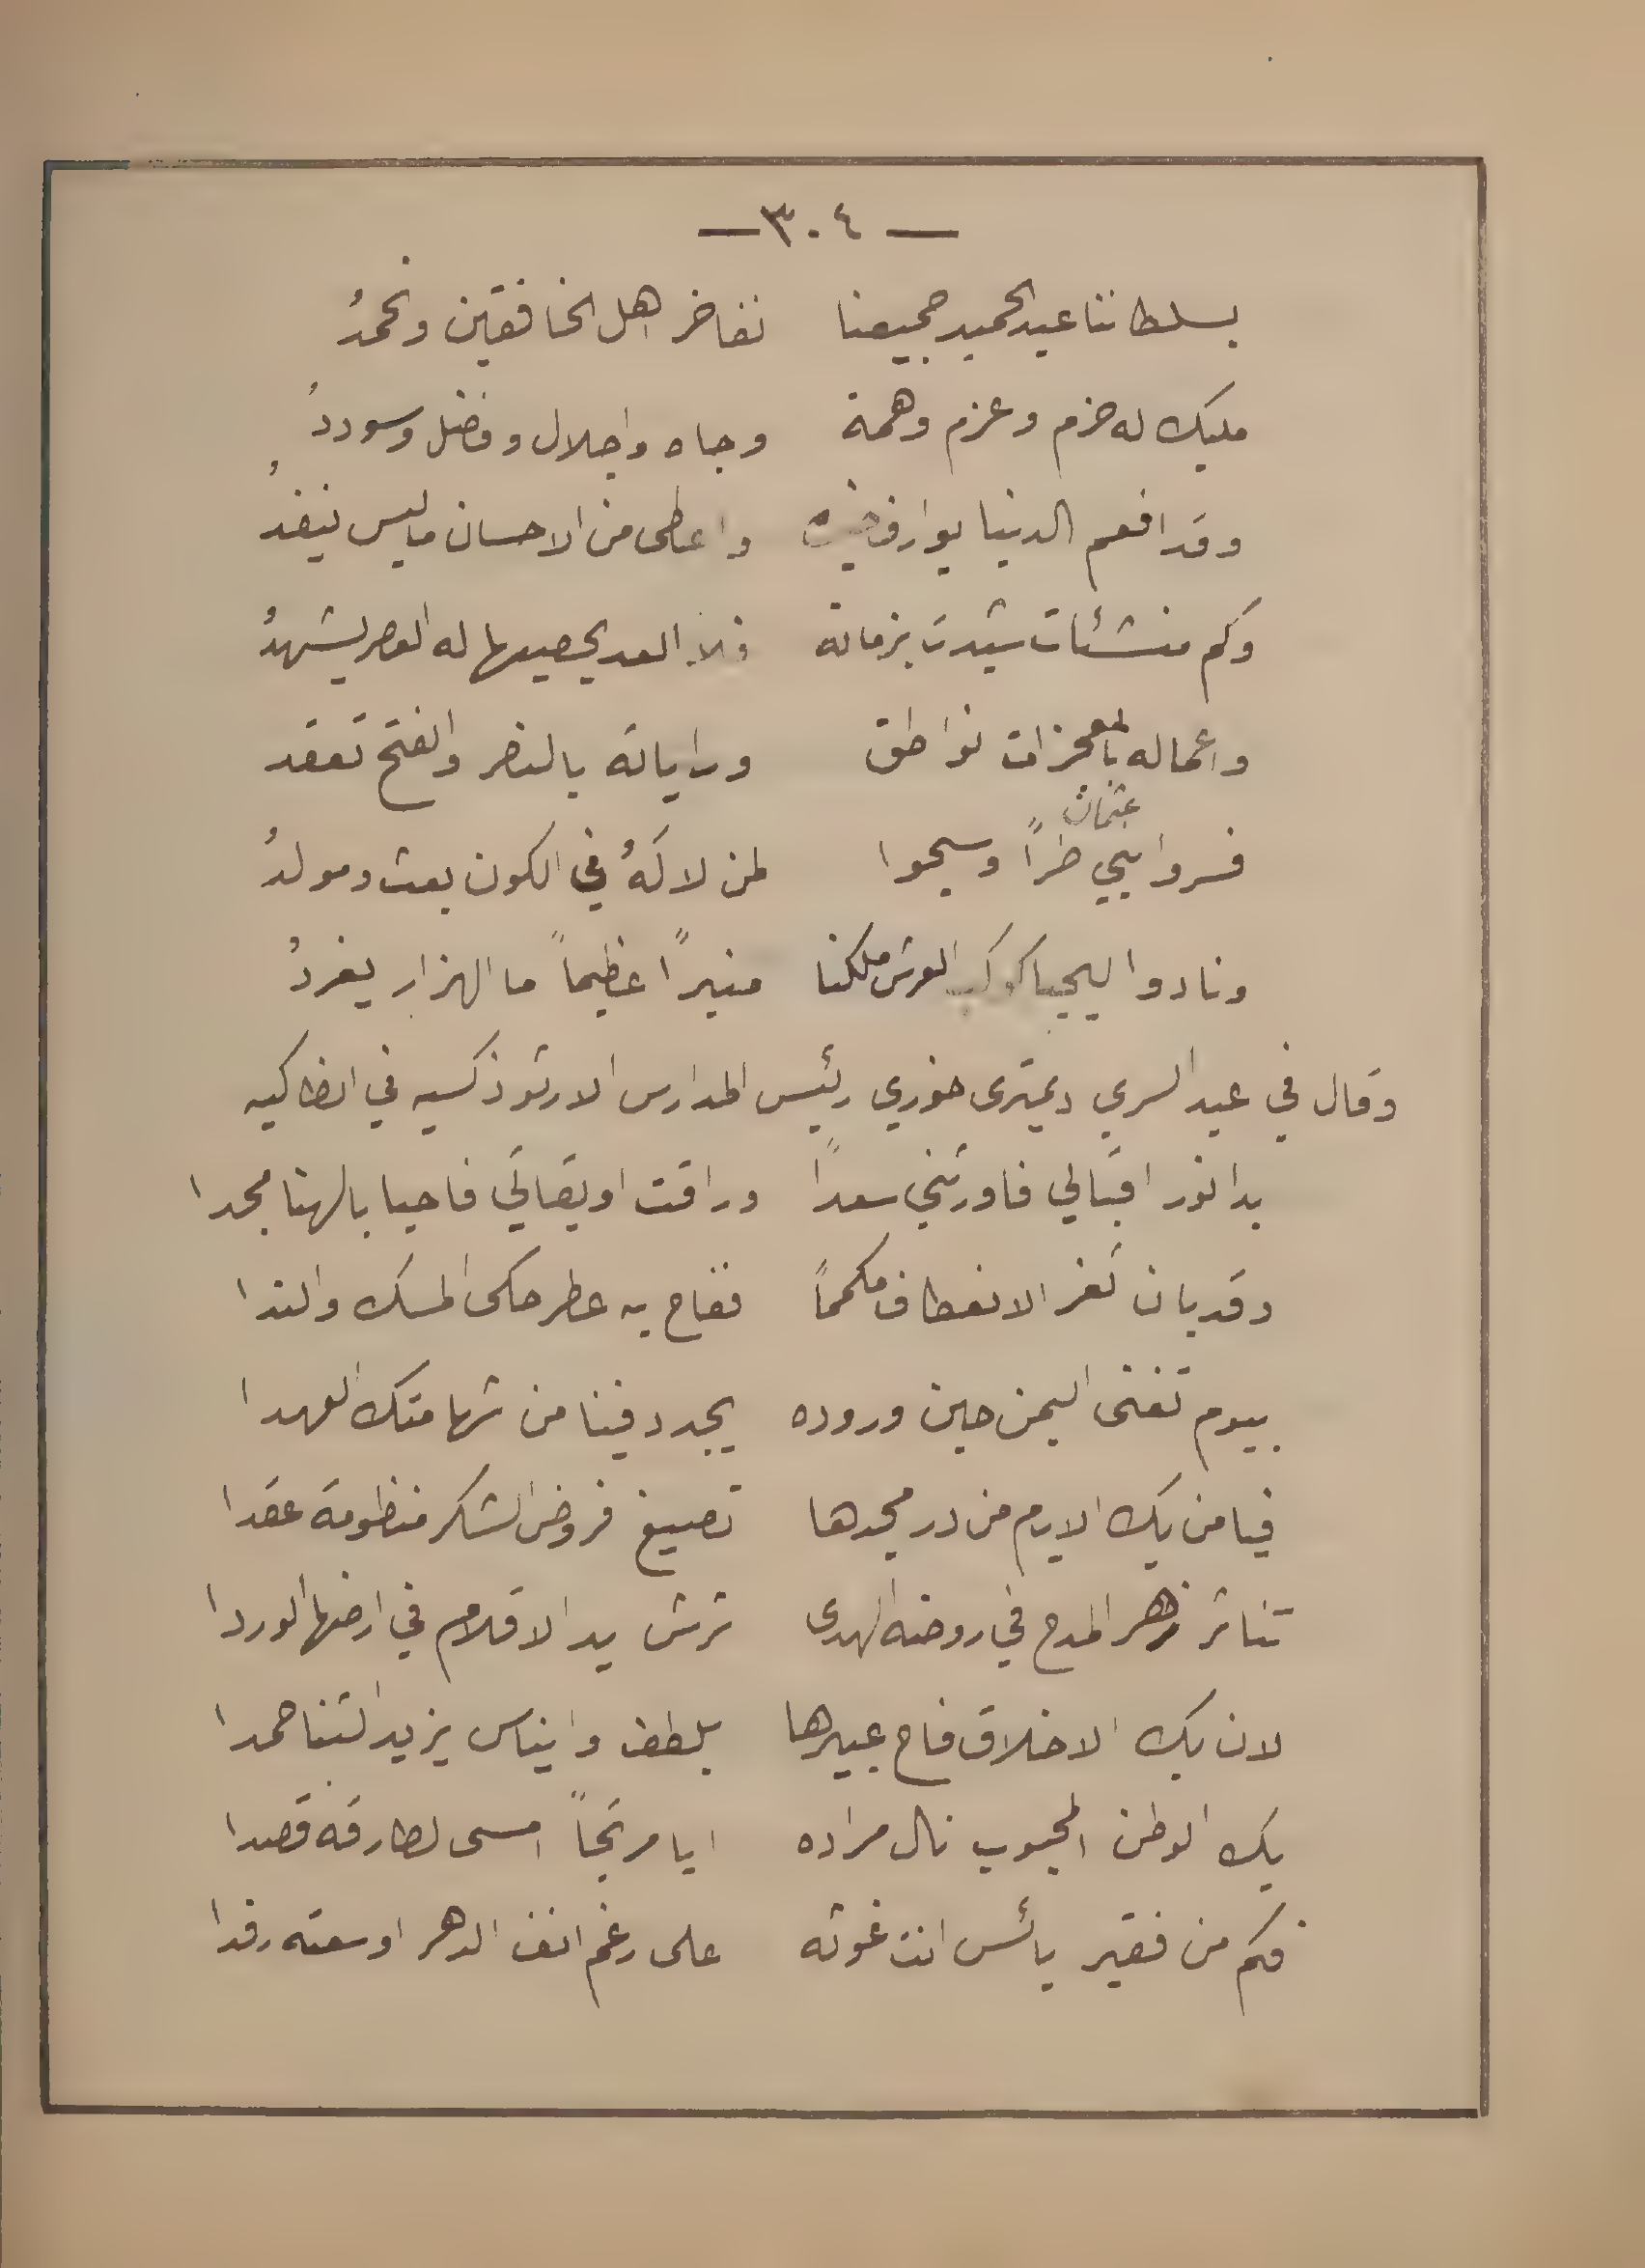 — ٣٠٤ —
بسلطاننا عبد الحميد جميعنا نفاخر اهل الخافقين ونحمدُ
مليك له حزم وعزم وهمة وجاه واجلال وفضل وسوددُ
وقد افعم الدنيا بوارف واعطى من الاحسان ماليس ينفدُ
وكم منشئات شيدت بزمانه فلا العد يحصيها له العصر يشهدُ
واعماله بالمعجزات نواطق وراياته بالنصر والفتح تعقد
فسروا بني عثمان طراً وسبحوا لمن لا لهُ في الكون بعث ومولدُ
ونادوا ليحيا كوكب العرش ملكنا منيراً عظيماً ما الهزار يغردُ
وقال في عيد السري ديمتري خوري رئيس المدارس الارثوذكسيه في انطاكيه
بدا نور اقبالي فاورثني سعداً وراقت اويقاتي فاحيا بالهنا مجدا
وقد بان ثغر الانعطاف مكمماً ففاح به عطر حكى المسك والندا
بيوم تغنى اليمن حين وروده يجدد فينا من شهامتك العهدا
فيا من بك الايام من در مجدها تصيغ فروض الشكر منظومة عقدا
تناثر زهر المدح في روضه الهدى ترش يد الاقلام في ارضها الوردا
لان بك الاخلاق فاح عبيرها بلطف وايناس يزيد الثنا حمدا
بك الوطن المحبوب نال مراده ايا مرتجاً امسى لطارقه قصدا
فكم من فقير يائس انت غوثه على رغم انف الدهر اوسعته رفدا